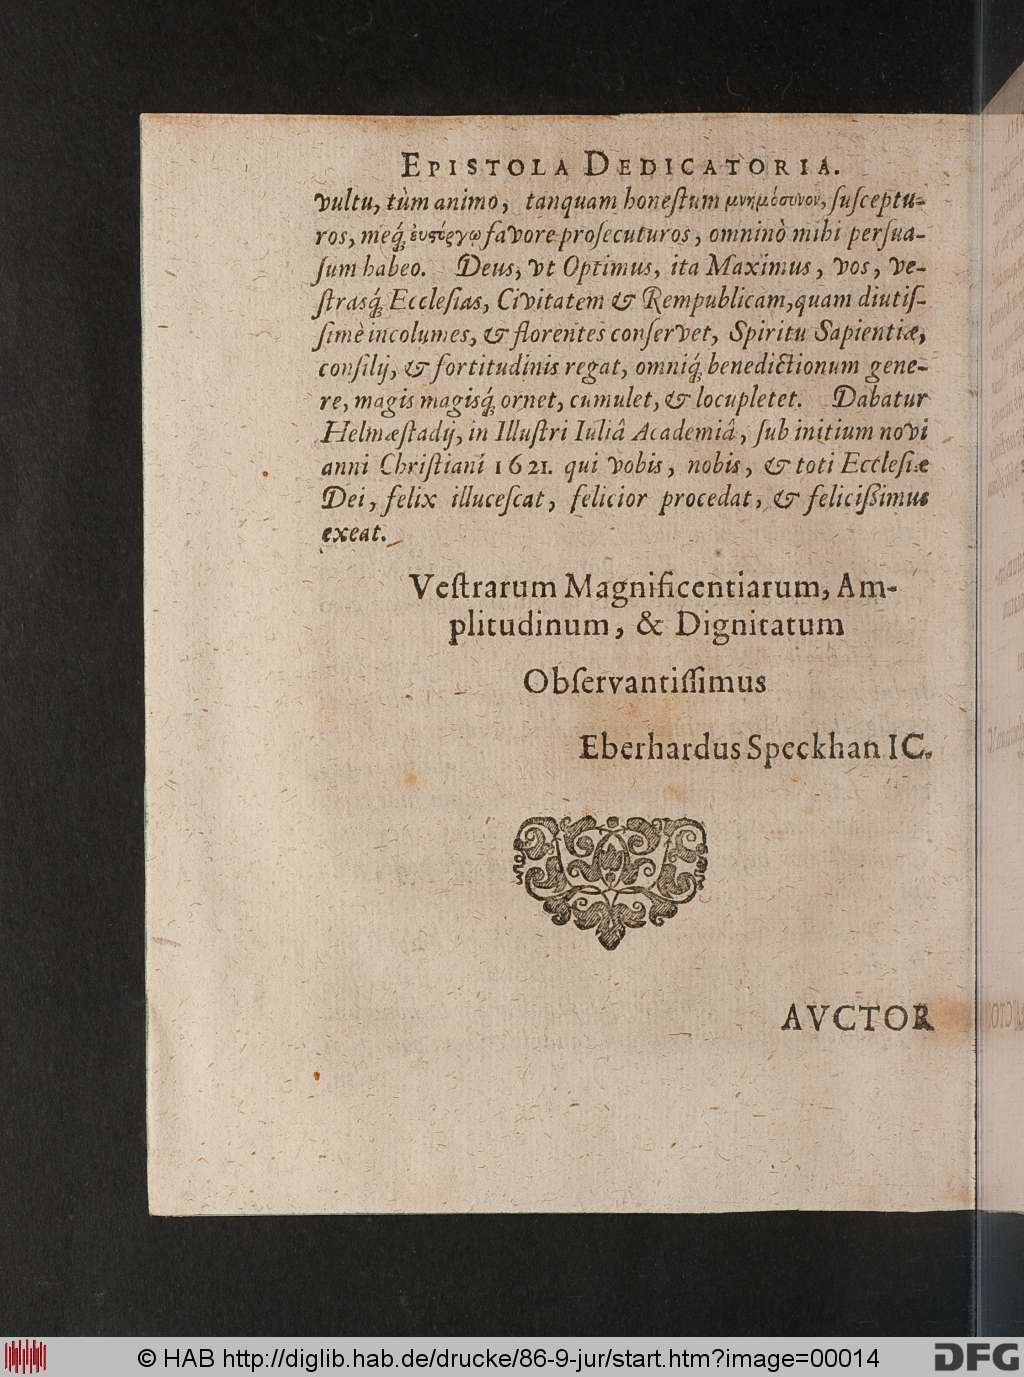 EPISTOLA DEDICATORIA.
vultu, tùm animo, tanquam honeſtum μνημόσυνον, ſuſceptu-
ros, meq́; favore proſecuturos, omninò mihi perſua-
ſum habeo. Deus, vt Optimus, ita Maximus, vos, ve-
ſtrasq́; Eccleſias, Civitatem & Rempublicam, quam diutiſ-
ſimè incolumes, & florentes conſervet, Spiritu Sapientiæ,
conſilij, & fortitudinis regat, omniq́; benedictionum gene-
re, magis magisq́; ornet, cumulet, & locupletet. Dabatur
Helmæſtadij, in Illuſtri Iuliâ Academiâ, ſub initium novi
anni Chriſtiani 1621. qui vobis, nobis, & toti Eccleſiæ
Dei, felix illuceſcat, felicior procedat, & feliciſſimus
exeat.
Veſtrarum Magnificentiarum, Am-
plitudinum, & Dignitatum
Obſervantiſſimus
Eberhardus Speckhan IC.
AVCTOR
© HAB http://diglib.hab.de/drucke/86-9-jur/start.htm?image=00014
DFG